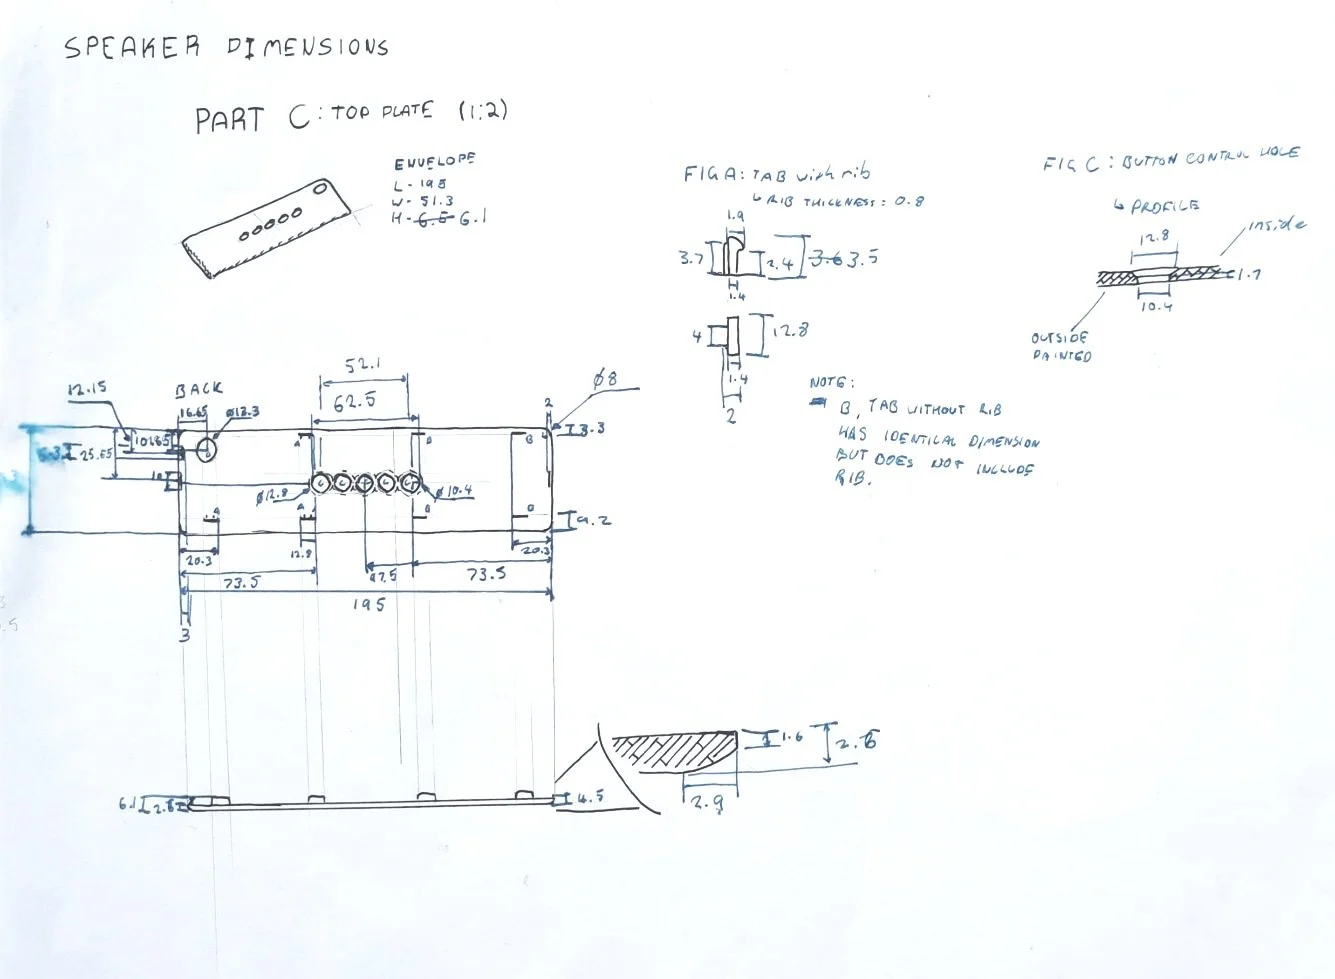 SPEAKER DIMENSIONS
PART C: TOP PLATE (1:2)
ENVELOPE
L - 195
W - 51.3
H - 6.6 6.1
FIG A: TAB with rib
↳ RIB THICKNESS: 0.8
1.9
3.7
2.4
3.6 3.5
1.4
4
12.8
1.4
2
FIG C: BUTTON CONTROL HOLE
↳ PROFILE
inside
12.8
1.7
10.4
OUTSIDE
PAINTED
NOTE:
B, TAB WITHOUT RIB
HAS IDENTICAL DIMENSION
BUT DOES NOT INCLUDE
RIB.
52.1
12.15
BACK
ø8
62.5
16.65
ø12.3
2
3.3
A
B
B
25.65
10
C C C C C
ø12.8
ø10.4
A
A
B
B
9.2
20.3
12.8
20.3
73.5
97.5
73.5
195
3
1.6
2.6
2.9
6.1
2.8
4.5